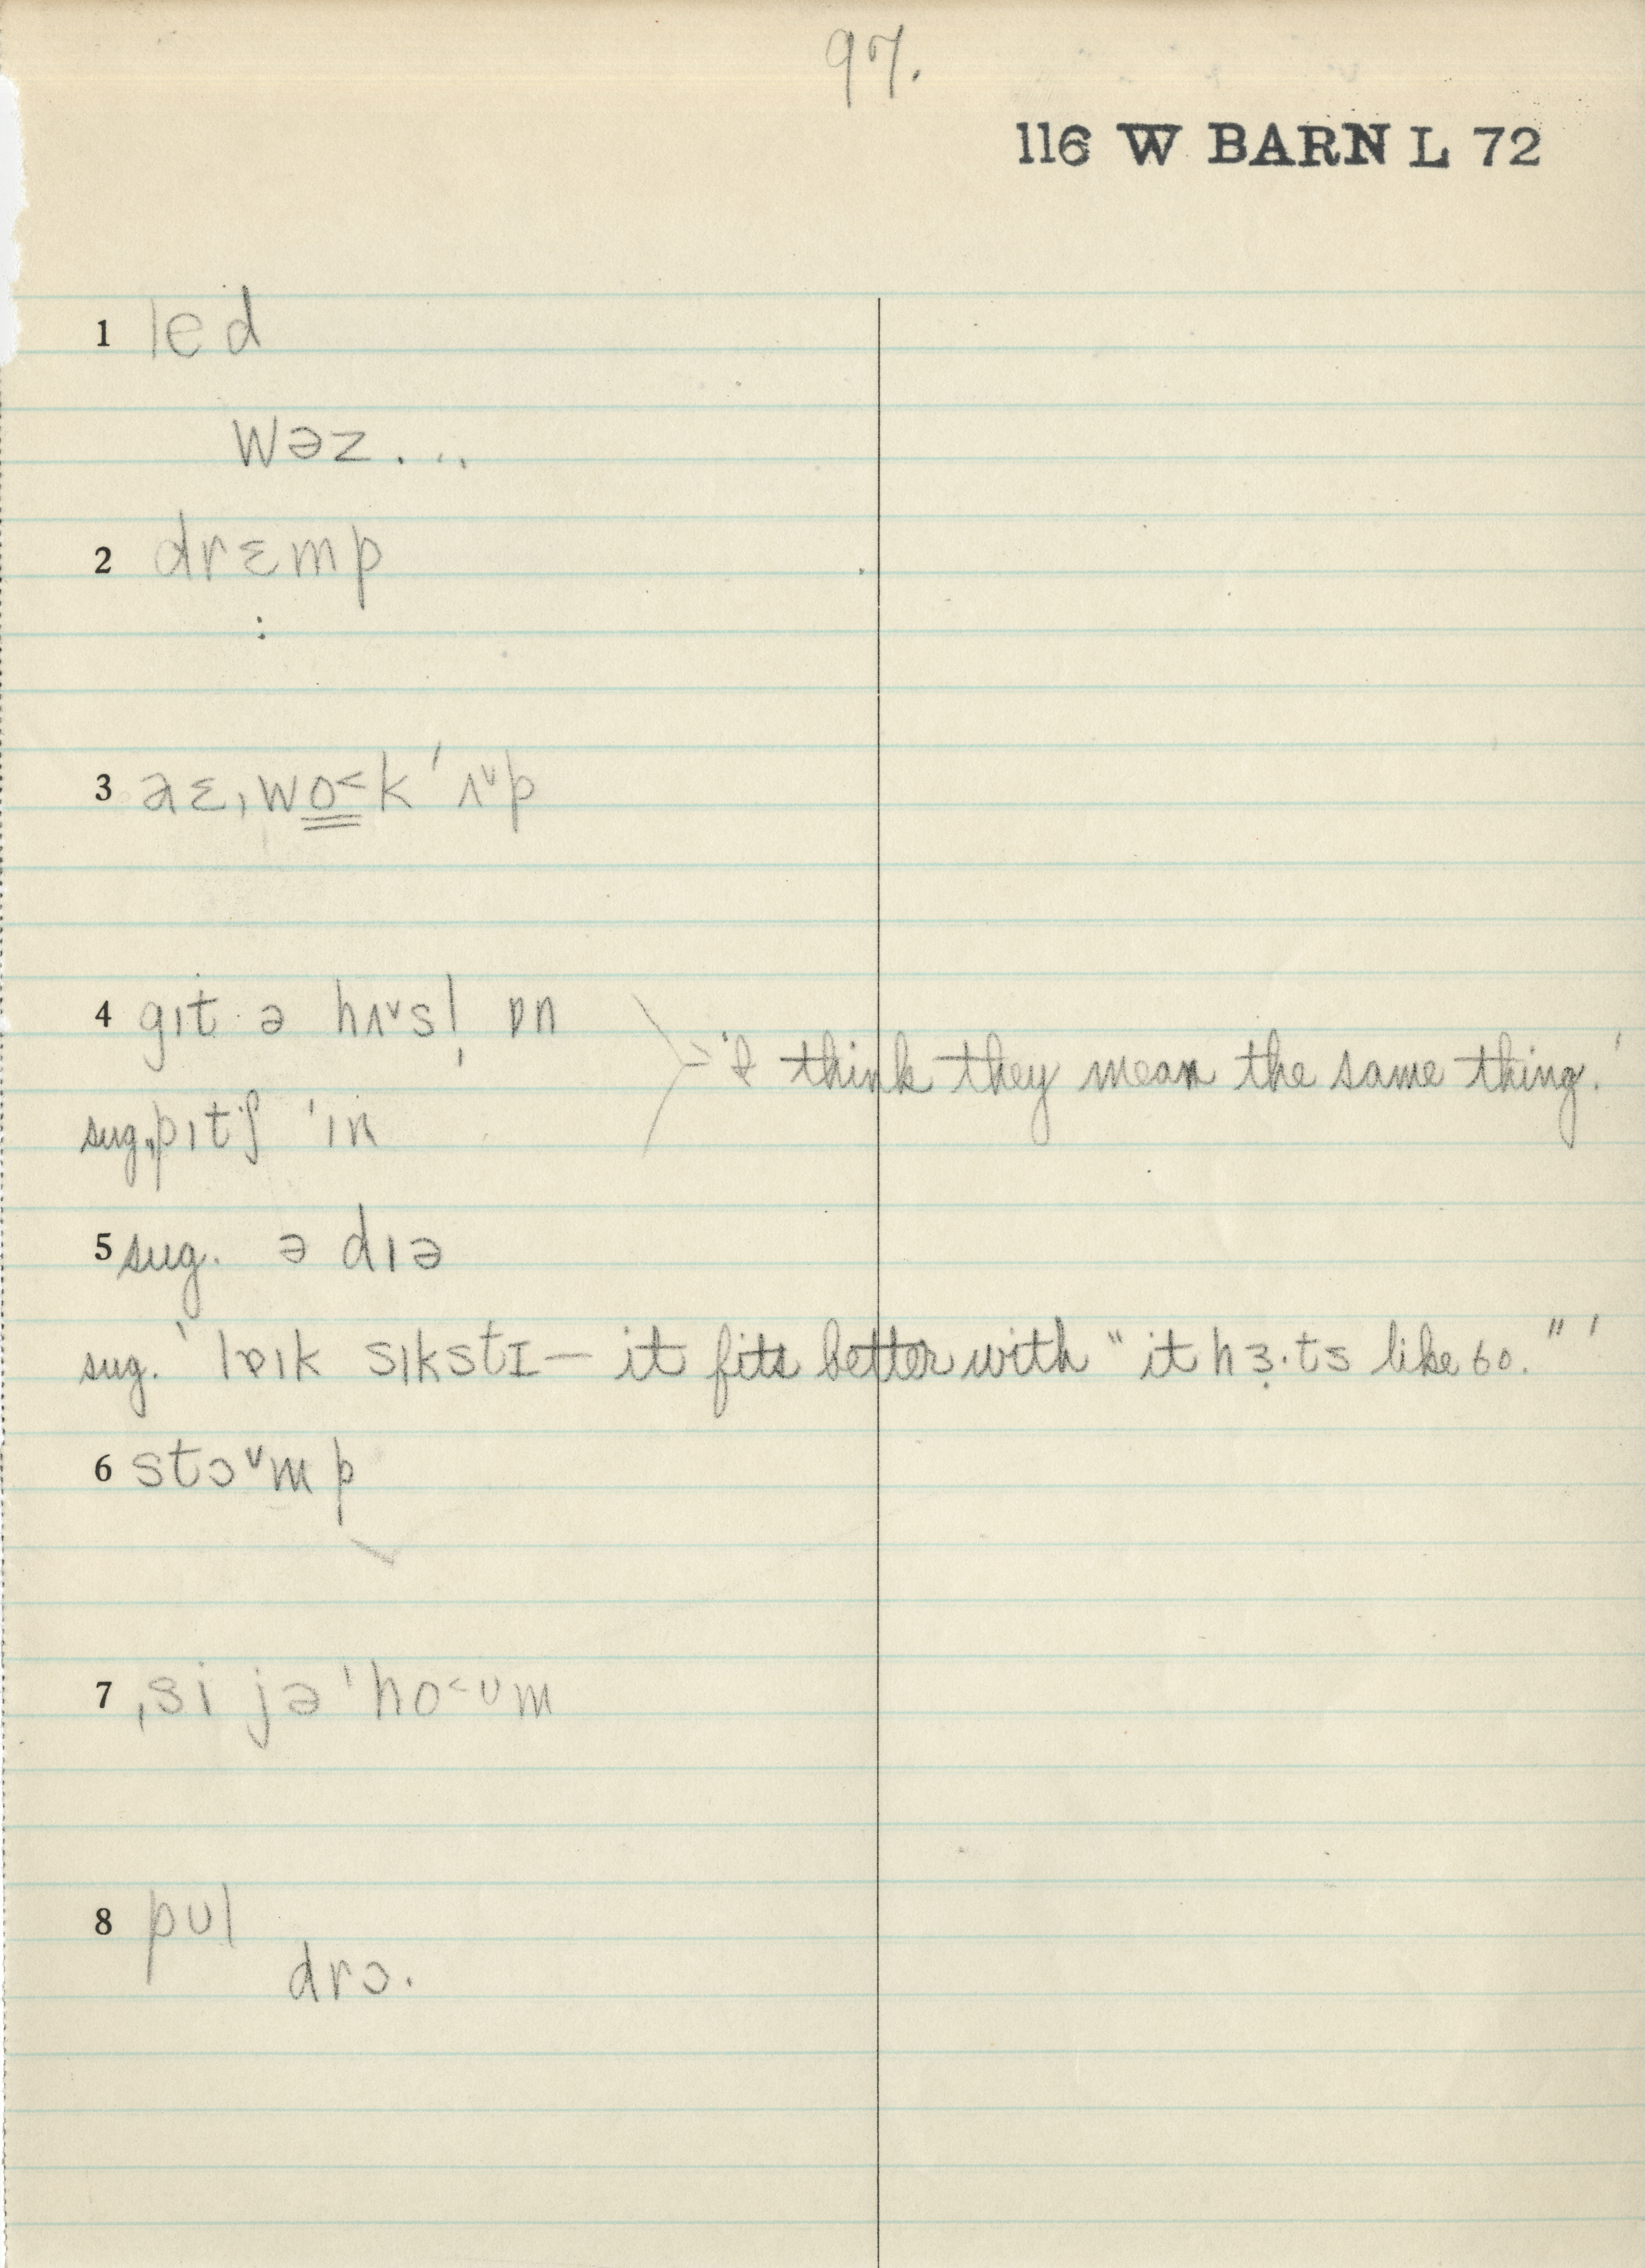 97.
116 W BARN L 72
1 led
wəz...
2 drɛmp
:
3 aɛˌwo˂k ˈʌ˅p
4 gɪt ə hʌ˅sl̩ ɒn
'I think they mean the same thing.'
sug. pɪtʃ ˈɪn
5 sug. ə dɪə
sug. ' lɒɪk sɪkstɪ — it fits better with "it hɜ̣·ts like 60." '
6 stɔ˅mp
7 ˌsi jə ˈho˂ʊm
8 pʊl
drɔ·